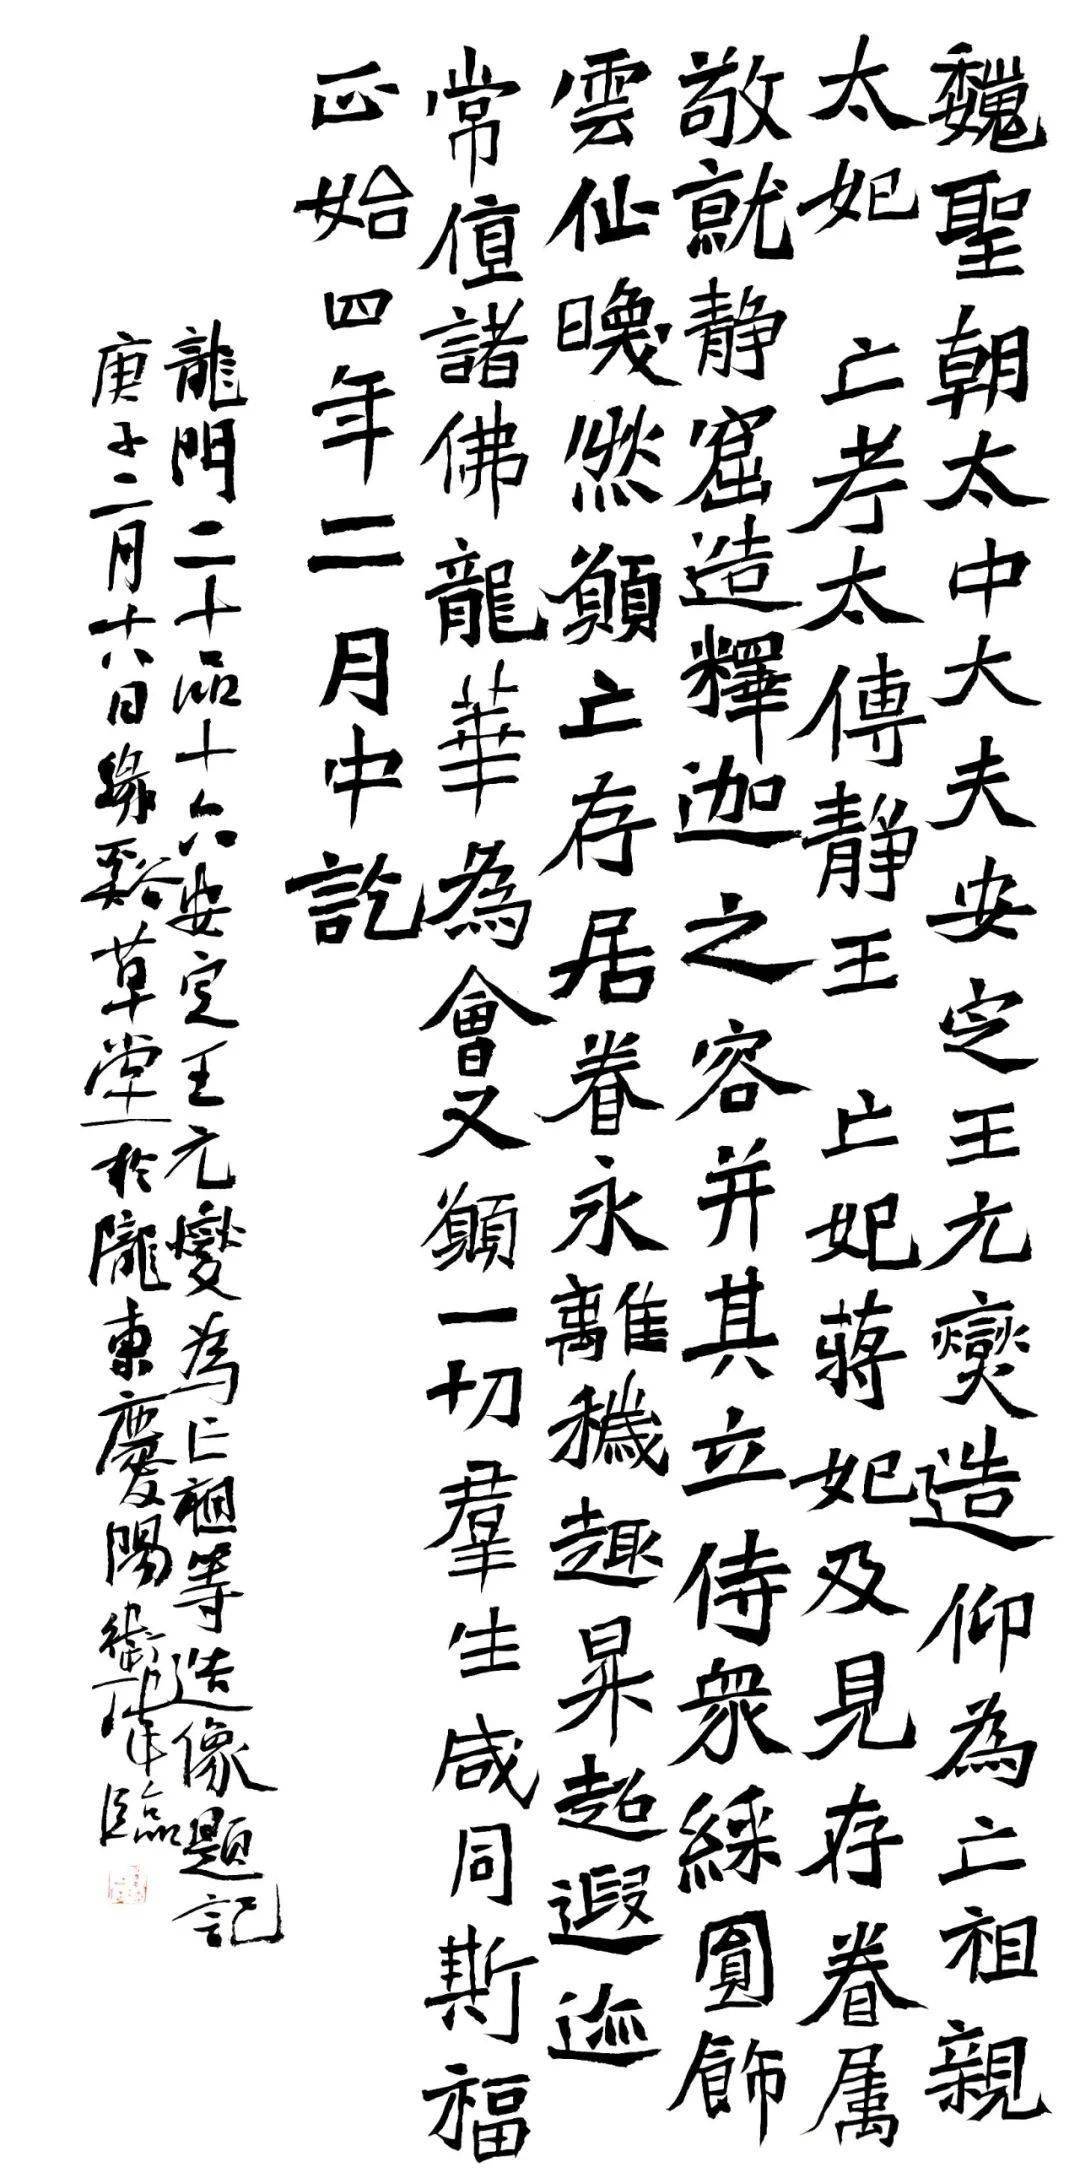 魏聖朝太中大夫安定王元燮造仰為亡祖親
太妃亡考太傅静王亡妃蔣妃及見存眷属
敬就静窟造釋迦之容并其立侍衆綵圓飾
雲仙曒然願亡存居眷永離穢趣昇超遐迹
常值諸佛龍華為會又願一切羣生咸同斯福
正始四年二月中訖
龍門二十品十六安定王元燮為亡祖等造像題記
庚子二月十六日緣谿草堂於隴東慶陽衛建軍臨